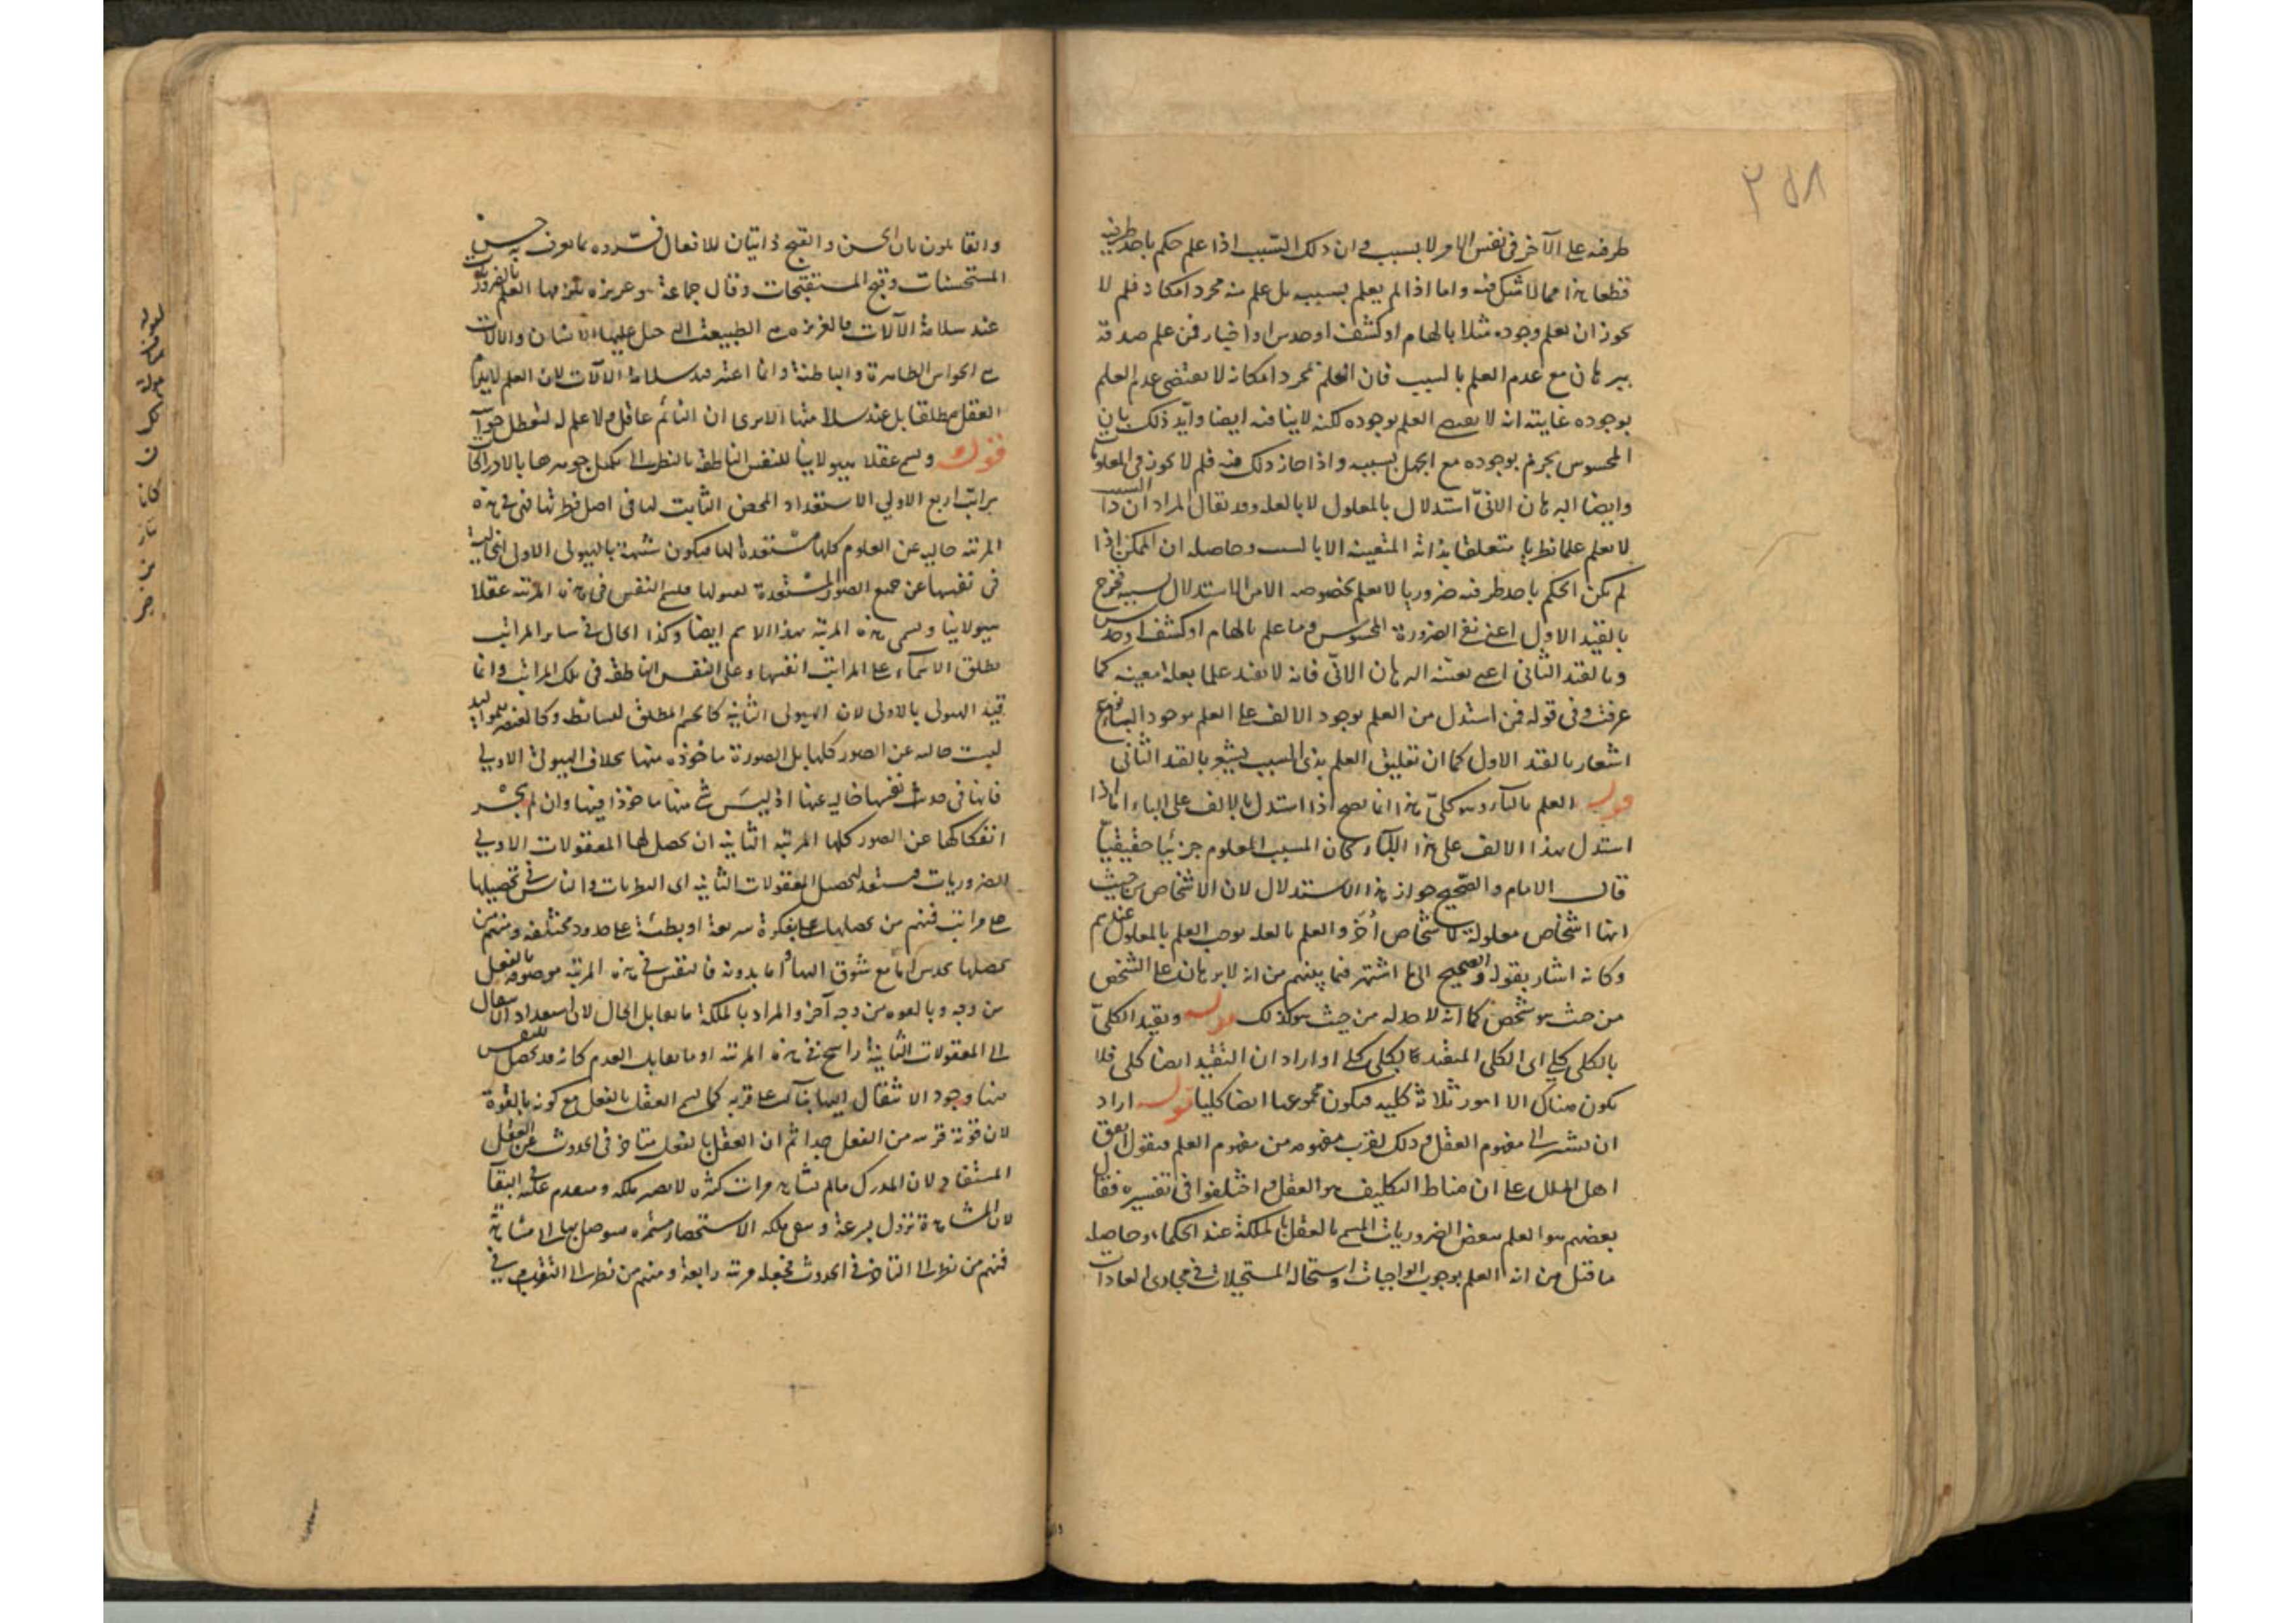 ٢٥٨
طرفيه على الآخر في نفس الامر لا بسبب وان ذلك السبب اذا علم حكم باحد طرفيه
قطعا هذا مما لا شك فيه واما اذا لم يعلم بسببه بل علم منه مجرد امكانه فلم لا
يجوز ان يعلم وجوده مثلا بالهام او كشف او حدس او اخبار من علم صدقه
ببرهان مع عدم العلم بالسبب فان العلم بمجرد امكانه لا يقتضي عدم العلم
بوجوده غايته انه لا يقتضي العلم بوجوده لكنه لا ينافيه ايضا وايد ذلك بان
المحسوس يجزم بوجوده مع الجهل بسببه واذا جاز ذلك فيه فلم لا يجوز في المعلوم
وايضا البرهان الانّي استدلال بالمعلول لا بالعلة وقد يقال المراد ان ذا السبب
لا يعلم علما نظريا متعلقا بذاته المتعينة الا بالسبب وحاصله ان الممكن اذا
لم يكن الحكم باحد طرفيه ضروريا لا يعلم بخصوصه الا من الاستدلال بسببه فخرج
بالقيد الاول اعني نفي الضرورة المحسوس وما علم بالهام او كشف او حدس
وبالقيد الثاني اعني تعينه البرهان الانّي فانه لا يفيد علما بعلة معينة كما
عرفت وفي قوله فمن استدل من العلم بوجود الالف على العلم بوجود الباء نوع
اشعار بالقيد الاول كما ان تعليق العلم بذي السبب يشعر بالقيد الثاني
قوله العلم بالباء وهو كلّي هذا انما يصح اذا استدل بالالف على الباء اما اذا
استدل بهذا الالف على هذا الباء كان المسبب المعلوم جزئيا حقيقيا
قال الامام والصحيح جواز هذا الاستدلال لان الاشخاص من حيث
انها اشخاص معلولة لاشخاص أُخَر والعلم بالعلة يوجب العلم بالمعلول عندهم
وكانه اشار بقوله والصحيح الى ما اشتهر فيما بينهم من انه لا برهان على الشخص
من حيث هو شخص كما انه لا حد له من حيث هو كذلك قوله وتقيد الكلّي
بالكلي كلي اي الكلي المقيد بالكلي كلي او اراد ان التقييد ايضا كلي فلا
يكون هناك الا امور ثلاثة كلية فيكون مجموعها ايضا كليا قوله اراد
ان يشير الى مفهوم العقل وذلك لقرب مفهومه من مفهوم العلم فنقول اتفق
اهل الملل على ان مناط التكليف هو العقل واختلفوا في تفسيره فقال
بعضهم هو العلم ببعض الضروريات المسمى بالعقل بالملكة عند الحكماء وحاصله
ما قيل من انه العلم بوجوب الواجبات واستحالة المستحيلات في مجاري العادات
والقائلون بان الحسن والقبح ذاتيان للافعال فسّروه بما يعرف به حسن
المستحسنات وقبح المستقبحات وقال جماعة هو غريزة يلزمها العلم بالضروريات
عند سلامة الآلات فالغريزة هي الطبيعة التي جبل عليها الانسان والآلات
هي الحواس الظاهرة والباطنة وانما اعتبر قيد سلامة الآلات لان العلم لا يلزم
العقل مطلقا بل عند سلامتها الا يرى ان النائم عاقل ولا علم له لتعطل حواسه
قوله ويسمى عقلا هيولانيا للنفس الناطقة بالنظر الى تكميل جوهرها بالادراكات
مراتب اربع الاولى الاستعداد المحض الثابت لها في اصل فطرتها فهي في هذه
المرتبة خالية عن العلوم كلها مستعدة لها فيكون شبيهة بالهيولى الاولى الخالية
في نفسها عن جميع الصور المستعدة لقبولها فيسمى النفس في هذه المرتبة عقلا
هيولانيا ويسمى هذه المرتبة بهذا الاسم ايضا وكذا الحال في سائر المراتب
يطلق الاسماء على المراتب انفسها وعلى النفس الناطقة في تلك المراتب وانما
قيد الهيولى بالاولى لان الهيولى الثانية كالجسم المطلق لبسائطه وكالعنصر للمواليد
ليست خالية عن الصور كلها بل الصورة ماخوذة منها بخلاف الهيولى الاولى
فانها في حدّ نفسها خالية عنها اذ ليس شيء منها ماخوذا فيها وان لم يجز
انفكاكها عن الصور كلها المرتبة الثانية ان يحصل لها المعقولات الاولى
الضروريات فيستعد لتحصيل المعقولات الثانية اي النظريات والناس في تحصيلها
على مراتب فمنهم من يحصلها بفكرة سريعة او بطيئة على حدود مختلفة ومنهم من
يحصلها بحدس اما مع شوق اليها واما بدونه فالنفس في هذه المرتبة موصوفة بالفعل
من وجه وبالقوة من وجه آخر والمراد بالملكة ما يقابل الحال لان استعداد الانتقال
الى المعقولات الثانية راسخ في هذه المرتبة او ما يقابل العدم كانه قد حصل للنفس
منها وجود الانتقال اليها بناء على قربه كما سمي العقل بالفعل مع كونه بالقوة
لان قوته قريبة من الفعل جدا ثم ان العقل بالفعل متاخر في الحدوث عن العقل
المستفاد لان المدرك ما لم يشاهد مرات كثيرة لا يصير ملكة ومتقدم عليه في البقاء
لان المشاهدة تزول بسرعة وتبقى ملكة الاستحضار مستمرة فيتوصل بها الى مشاهدة
فمنهم من نظر الى التاخر في الحدوث فجعله مرتبة رابعة ومنهم من نظر الى التقدم في